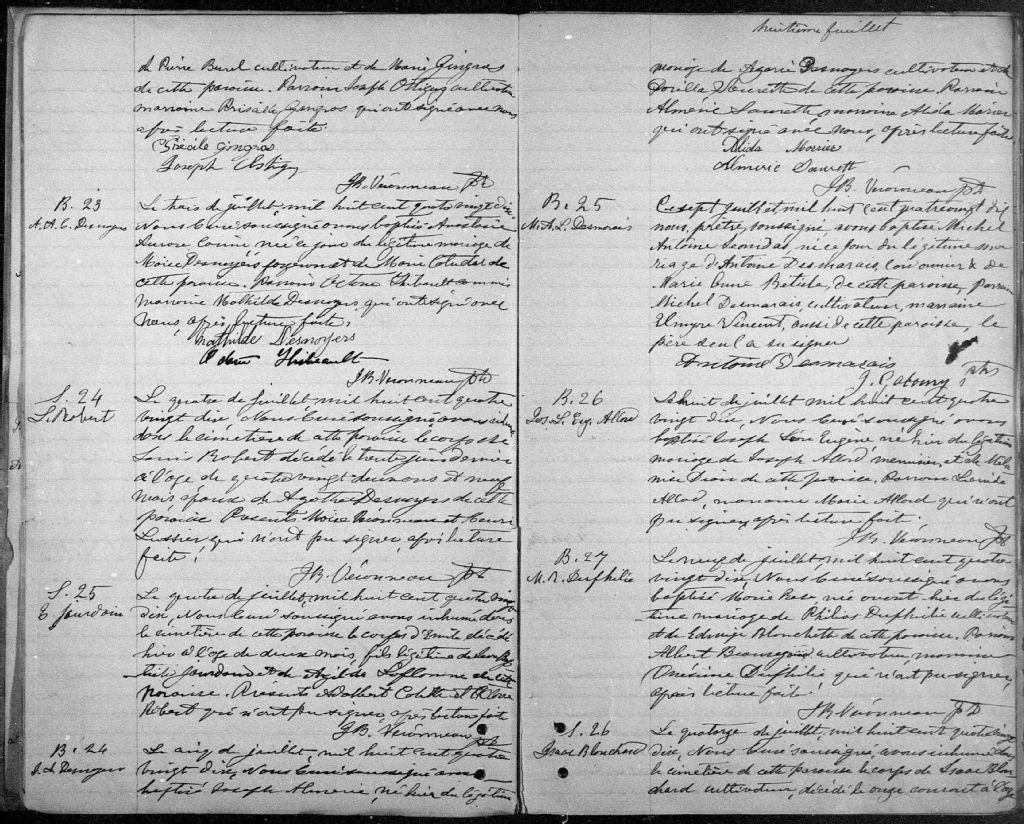 de Pierre Burel cultivateur et de Marie Gingras
de cette paroisse. Parrain Joseph Ostiguy cultivateur
marraine Priscille Gingras qui ont signé avec nous
après lecture faite.
Priscile Gingras
Joseph Ostiguy
J.B. Véronneau Ptr
B. 23
A. A. C. Desnoyers
Le trois de juillet, mil huit cent quatre vingt dix
Nous Curé soussigné avons baptisé Anastasie
Aurore, née ce jour du légitime mariage de
Moise Desnoyers forgeron et de Marie
cette paroisse. Parrain Octave Thibault commis
Marraine Mathilde Desnoyers, qui ont signé avec
Nous, après lecture faite.
Mathilde Desnoyers
Thibeault
J.B. Véronneau Ptr
S. 24
L. Robert
Le quatre de juillet, mil huit cent quatre
vingt dix, Nous Curé soussigné, avons inhumé
dans le cimetière de cette paroisse le corps de
Louis Robert décédé le trente juin dernier
à l'age de quatre vingt deux ans et neuf
mois époux de Agathe Desnoyers de cette
paroisse. Présents Moise Véronneau et Henri
Lussier qui n'ont pu signer, après lecture
faite.
J.B. Véronneau Ptr
S. 25
E. Jourdain
Le quatre de juillet, mil huit cent quatre vingt
dix, Nous Curé soussigné avons inhumé dans
le cimetière de cette paroisse le corps d'Emile décédé
hier à l'age de deux mois, fils légitime de
Jourdain et de Laflamme de cette
paroisse. Présents Adalbert et
Robert qui n'ont pu signer, après lecture faite
J.B. Véronneau Ptr
B. 24
J. A. Desnoyers
Le cinq de juillet, mil huit cent quatre
vingt dix, Nous Curé soussigné avons
baptisé Joseph Almerie, né hier du légitime
huitième feuillet
mariage de Agarie Desnoyers cultivateur et de
Fleurette de cette paroisse. Parrain
Almérie Saurette, marraine Alida Morier
qui ont signé avec nous, après lecture faite.
Alida Morrier
Almerie Saurett
J.B. Véronneau Ptr
B. 25
M. A. L. Desmarais
Ce sept juillet, mil huit cent quatrevingt dix
nous, prêtre, soussigné, avons baptisé Michel
Antoine Leonidas, né ce jour du légitime ma-
riage d'Antoine Desmarais, cordonnier & de
Marie Anne Batiste, de cette paroisse, parrain
Michel Desmarais, cultivateur, marraine
Elmyre Vincent, aussi de cette paroisse, le
père seul a su signer
Antoine Desmarais
ptre
B. 26
Jos. L. Eug. Allard
Le huit de juillet, mil huit cent quatre
vingt dix, Nous Curé soussigné avons
baptisé Joseph Léon Eugene né hier du légitime
mariage de Joseph Allard menuisier, et de Méla
nie Dion de cette paroisse. Parrain
Allard, marraine Marie Allard qui n'ont
pu signer, après lecture faite.
J.B. Véronneau Ptr
B. 27
M. R. Duphilie
Le neuf de juillet, mil huit cent quatre
vingt dix, Nous Curé soussigné avons
baptisé Marie Rose née avant-hier du légi
time mariage de Philias Duphilie cultivateur
et de Edwige Blanchette de cette paroisse. Parrain
Albert Beauregard cultivateur, marraine
Onésime Duphilie qui n'ont pu signer,
après lecture faite.
J.B. Véronneau Ptr
S. 26
Isaac Blanchard
Le quatorze de juillet, mil huit cent quatre vingt
dix, Nous Curé soussigné, avons inhumé dans
le cimetière de cette paroisse le corps de Isaac Blan
chard cultivateur, décédé le onze courant à l'age